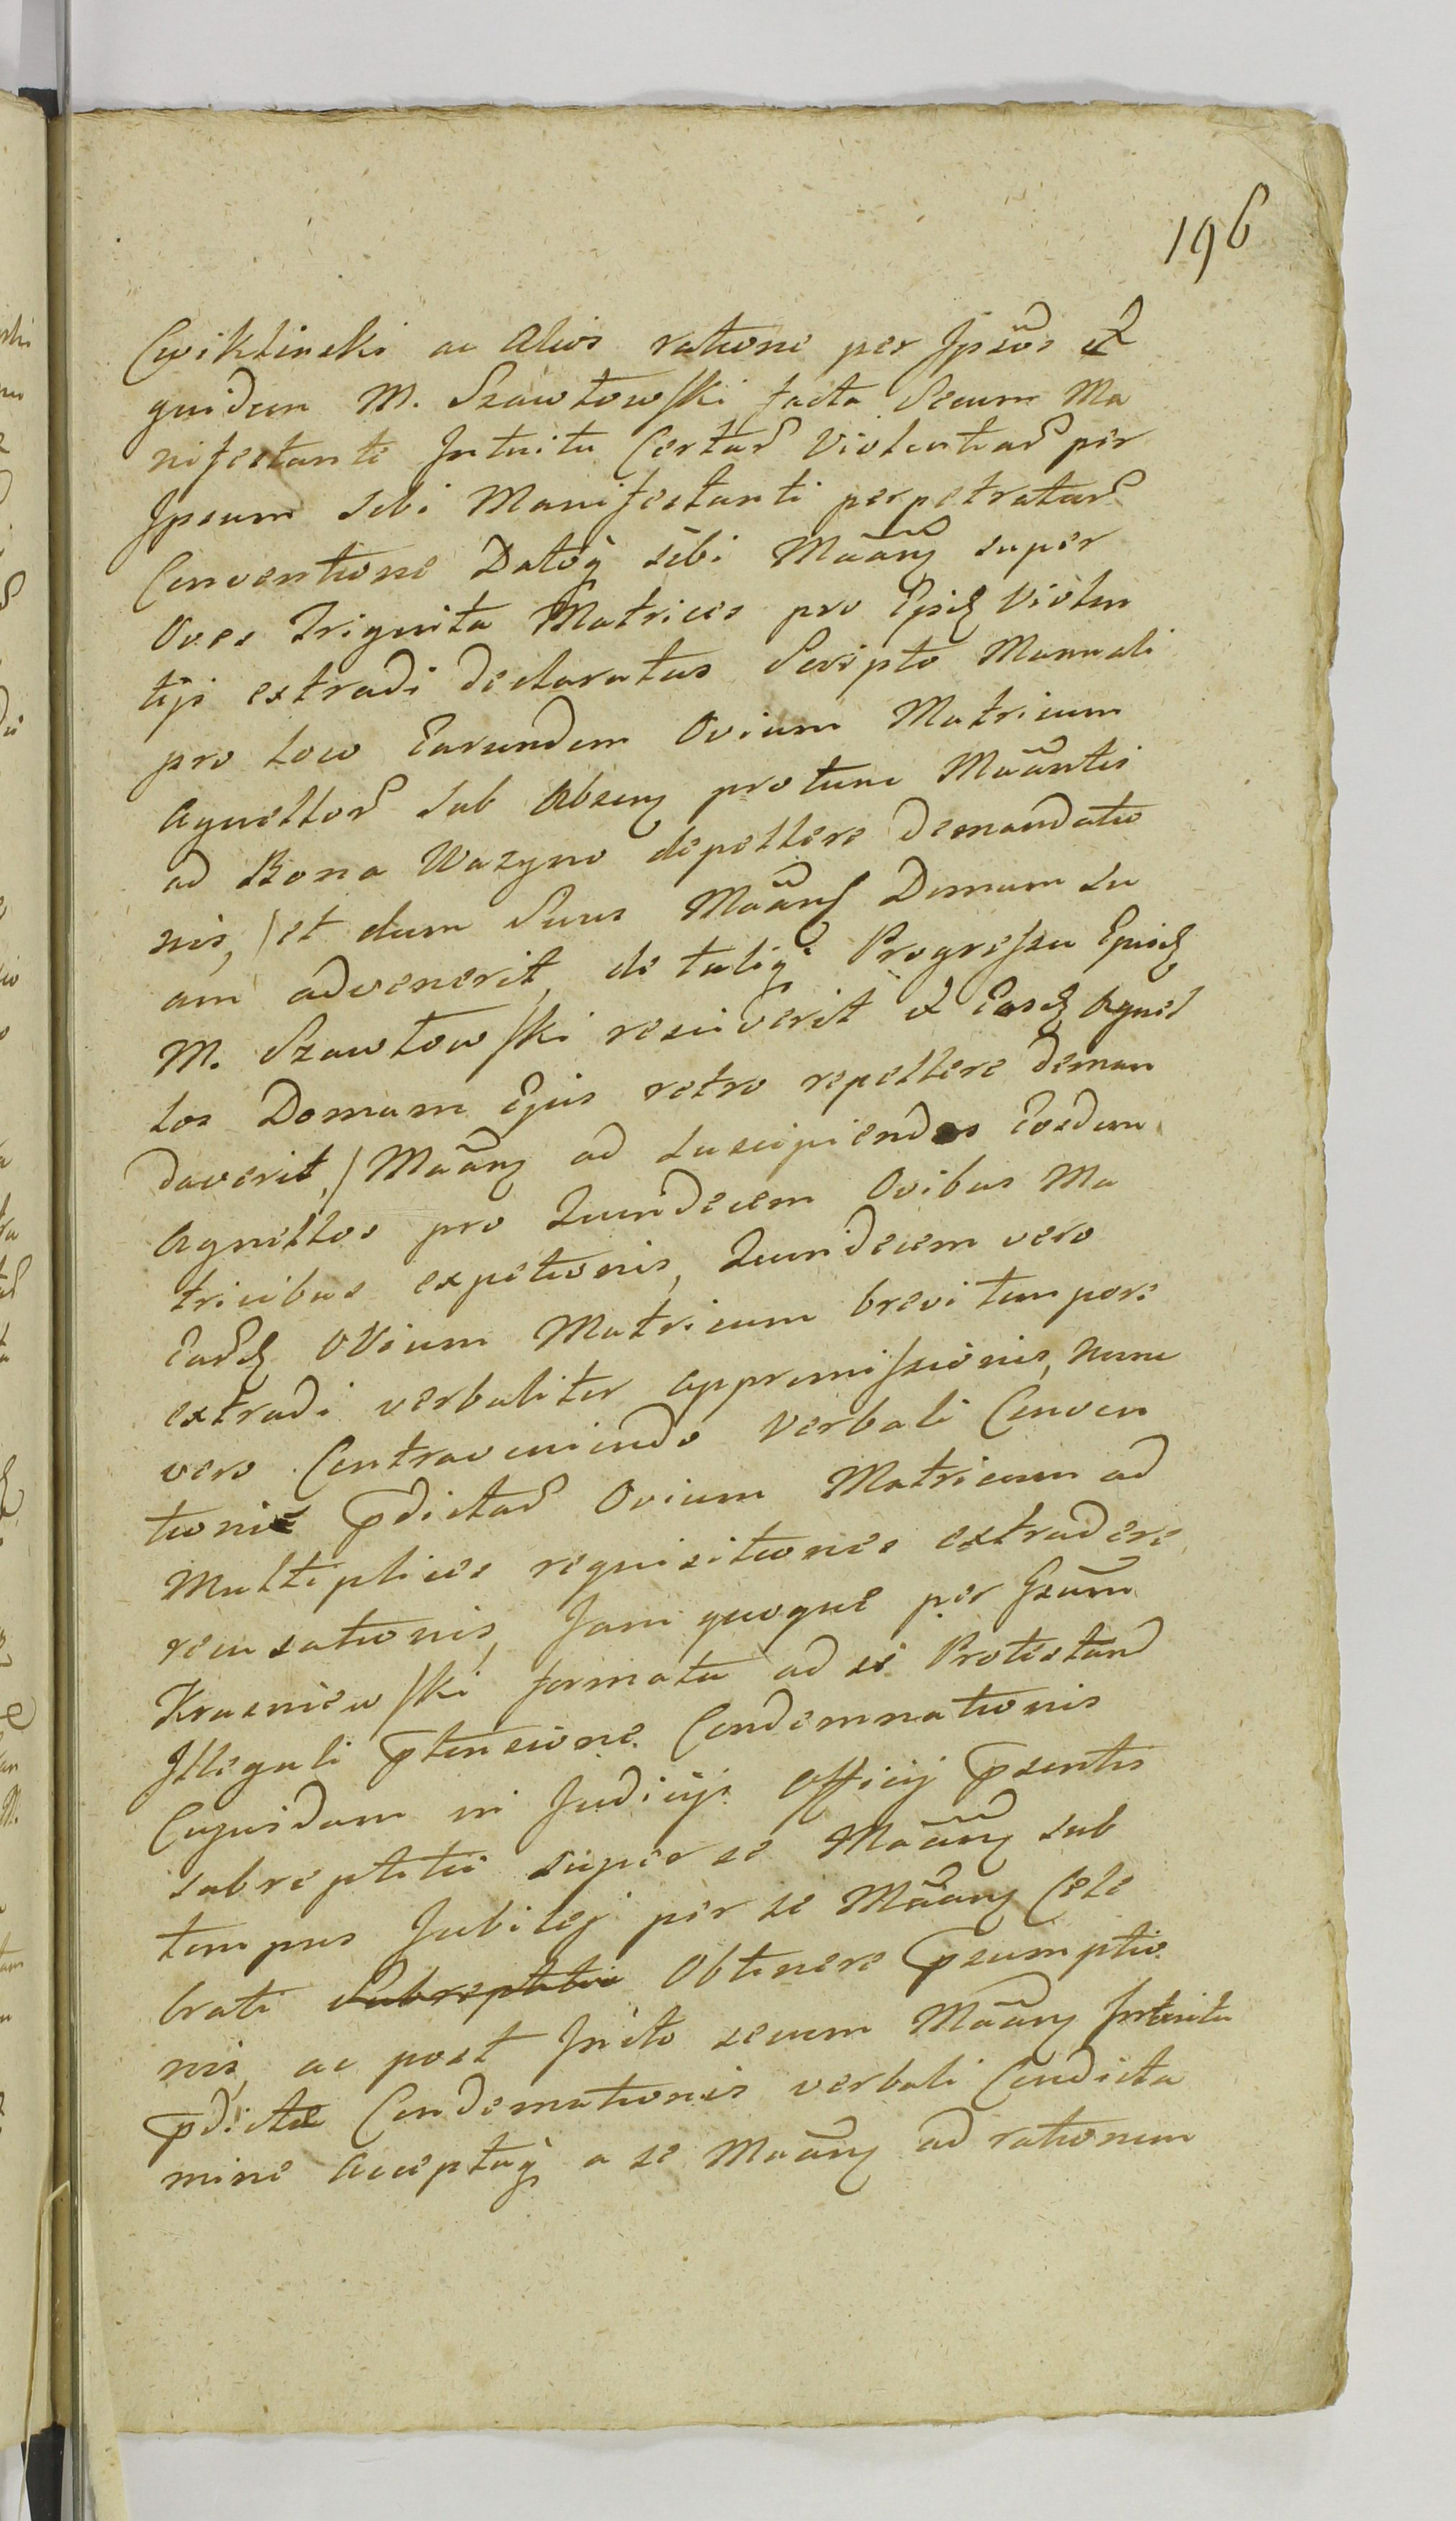 196
Cwiklinski ac Alios ratione per Ipsos et
quidem M. Szawłowski facta Secum Ma
nifestante Intuitu Certar Violentiar per
Ipsum sibi Manifestanti perpetratar
Conventione Datoq sibi Māanż super
Oves Triginta Matrices pro Ejsdż Violen
tijs extradi declaratas Scripto Manuali
pro loco Earundem Ovium Matricum
Agnellor sub Absenż protunc Māantis
ad Bona Wazyno depellere demandatio
nis, /et dum Suus Māans Domum su
am advenerit, de taliq Progressu Ejusdż
M. Szawłowski resciverit et Eosdż Agnel
los Domum Ejus retro repellere deman
daverit,/ Māanż ad suscipiendos Eosdem
Agnellos pro Quindecem Ovibus Ma
tricibus expetionis, Quindecem vero
Eardż OVium Matricum brevi tempore
extradi verbaliter appromissionis, Nunc
vero Contraveniendo Verbali Conven
tioni pdictar Ovium Matricum ad
Multiplices requisitiones extradere
recusationis, Jam quoque per Gsum
Krasniewski formata ad se Protestand
Illegali ptensione Condemnationis
Cujusdam in Judicijs Officij psentis
subreptitii super se Māanż sub
tempus Jubilej per se Māanż Cele
brati Subreptitie Obtinere psumptio
nis, ac post Inito secum Māanż Intuitu
pdictae Condemnationis verbali Condicta
mine Acceptaq a se Māanż ad rationem